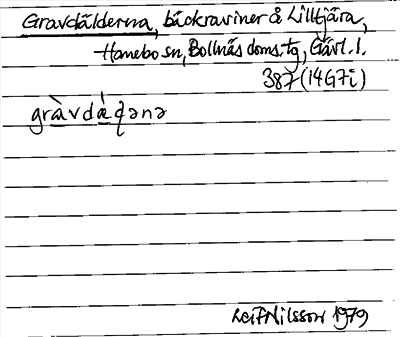 Gravdälderna, bäckraviner å Lilltjära,
Hanebo sn, Bollnäs doms. tg, Gävl. l.
387 (14G7i)
gràvdàɖənə
Leif Nilsson 1979